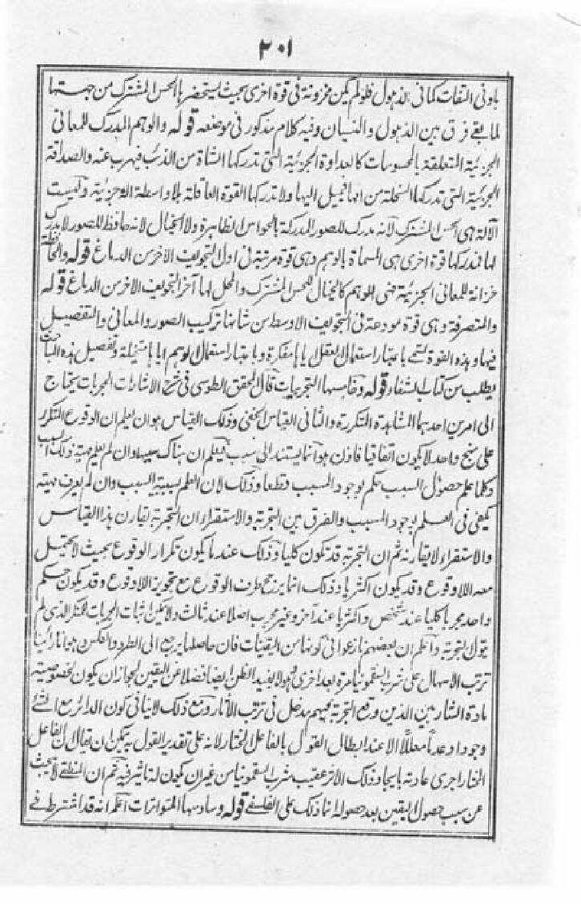 ٢٠١
بادنى التفات كمانى الذهول فلولم يكن مخزونة فى قوة اخرى بحيث يستحضرها الحس المشترك من جهتها
لما بقے فرق بين الذهول والنسيان وفيه كلام مذكور فى موضعه قوله والوهم المدرك للمعانى
الجزئية المتعلقة بالمحسوسات كالعداوة الجزئية التى تدركها الشاة من الذئب فيهرب عنه والصداقة
الجزئية التى تدركها السخلة من امها فتميل اليها ولا تدركها القوة العاقلة بلا واسطة الة جزئية وليست
الآلة هى الحس المشترك لانه مدرك للصور المدركة بالحواس الظاهرة ولا الخيال لانه حافظ للصور لا مدرك
لها فتدركها قوة اخرى هى المسماة بالوهم وهى قوة مرتبة فى اول التجويف الآخر من الدماغ قوله والحافظة
خزانة للمعانى الجزئية فهى للوهم كالخيال للحس المشترك والمحل لها آخر التجويف الآخر من الدماغ قوله
والمتصرفة وهى قوة مودعة فى التجويف الاوسط من شانها تركيب الصور والمعانى والتفصيل
فيها وهذه القوة تسمى باعتبار استعمال العقل اياها مفكرة وباعتبار استعمال الوهم اياها متخيلة وتفصيل هذه المباحث
يطلب من كتاب الشفاء قوله وخامسها التجربيات قال المحقق الطوسى فى شرح الاشارات المجربات يحتاج
الى امرين احدهما المشاهدة المتكررة والثانى القياس الخفى وذلك القياس هو ان يعلم ان الوقوع المتكرر
على نهج واحد لا يكون اتفاقيا فاذن هو انما يستند الى سبب فيعلم ان هناك سببا وان لم يعلم مهية ذلك السبب
وكلما علم حصول السبب حكم بوجود المسبب قطعا وذلك لان العلم بسببية السبب وان لم يعرف مهيته
يكفى فى العلم بوجود المسبب والفرق بين التجربة والاستقراء ان التجربة يقارن هذا القياس
والاستقراء لا يقارنه ثم ان التجربة قد تكون كليا وذلك عند ما يكون تكرار الوقوع بحيث لا يحتمل
معه اللا وقوع وقد يكون اكثريا وذلك انما يترجح طرف الوقوع مع تجويز اللا وقوع وقد يكون حكم
واحد مجربا كليا عند شخص واكثريا عند آخر وغير مجرب اصلا عند ثالث ولا يمكن اثبات المجربات للمنكر الذى لم
يتول التجربة واعلم ان بعضهم نازعوا فى كونها من اليقينيات فان حاصلها يرجع الى الطرد والعكس هو انا رأينا
ترتب الاسهال على شرب السقمونيا مرة بعد اخرى وهو لا يفيد الظن ايضا فضلا عن اليقين لجواز ان يكون لخصوصية
مادة الشاربين الذين وقع التجربة فيهم مدخل فى ترتب الآثار ومع ذلك لا ينافى كون الدائر مع الشئے
وجودا وعدما معللا الا عند ابطال القول بالفاعل المختار لانه على تقدير القول به يمكن ان يقال ان الفاعل
المختار اجرى عادته بايجاد ذلك الاثر عقيب شرب السقمونيا من غير ان يكون له تاثير فيه ثم ان المنطقے لا يبحث
عن سبب حصول اليقين بعد حصوله انما ذلك على الفلسفے قوله وسادسها المتواترات اعلم انه قد اشترط فى